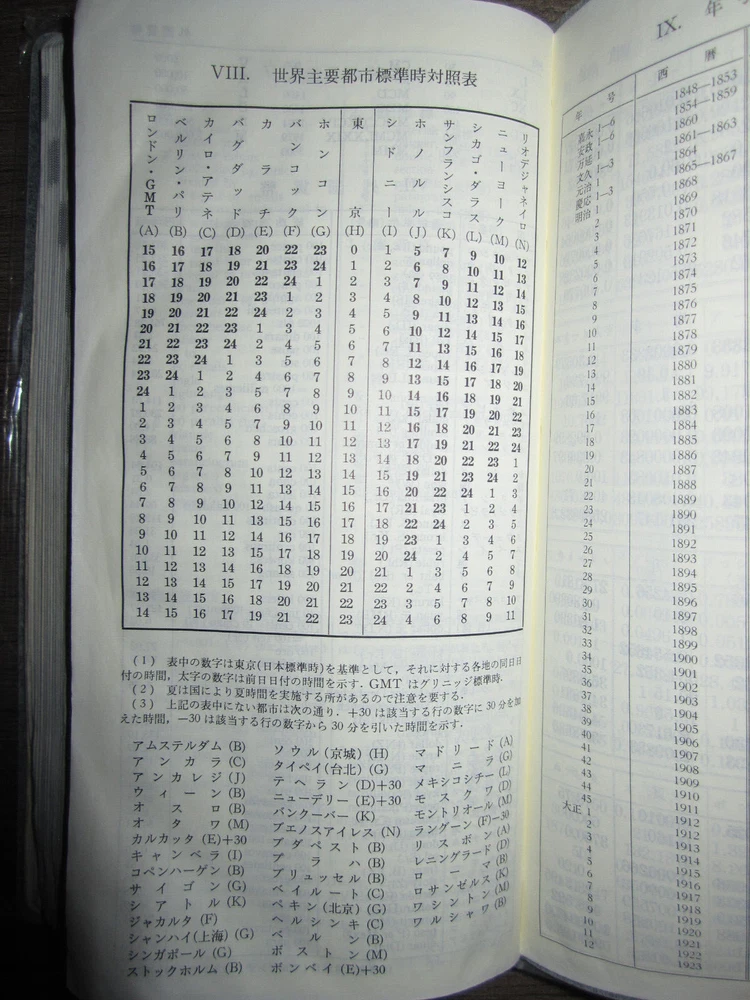 VIII. 世界主要都市標準時対照表
ロンドン・GMT (A)
ベルリン・パリ (B)
カイロ・アテネ (C)
バグダッド (D)
カラチ (E)
バンコック (F)
ホンコン (G)
東京 (H)
シドニー (I)
ホノルル (J)
サンフランシスコ (K)
シカゴ・ダラス (L)
ニューヨーク (M)
リオデジャネイロ (N)
15 16 17 18 20 22 23 0 1 5 7 9 10 12
16 17 18 19 21 23 24 1 2 6 8 10 11 13
17 18 19 20 22 24 1 2 3 7 9 11 12 14
18 19 20 21 23 1 2 3 4 8 10 12 13 15
19 20 21 22 24 2 3 4 5 9 11 13 14 16
20 21 22 23 1 3 4 5 6 10 12 14 15 17
21 22 23 24 2 4 5 6 7 11 13 15 16 18
22 23 24 1 3 5 6 7 8 12 14 16 17 19
23 24 1 2 4 6 7 8 9 13 15 17 18 20
24 1 2 3 5 7 8 9 10 14 16 18 19 21
1 2 3 4 6 8 9 10 11 15 17 19 20 22
2 3 4 5 7 9 10 11 12 16 18 20 21 23
3 4 5 6 8 10 11 12 13 17 19 21 22 24
4 5 6 7 9 11 12 13 14 18 20 22 23 1
5 6 7 8 10 12 13 14 15 19 21 23 24 2
6 7 8 9 11 13 14 15 16 20 22 24 1 3
7 8 9 10 12 14 15 16 17 21 23 1 2 4
8 9 10 11 13 15 16 17 18 22 24 2 3 5
9 10 11 12 14 16 17 18 19 23 1 3 4 6
10 11 12 13 15 17 18 19 20 24 2 4 5 7
11 12 13 14 16 18 19 20 21 1 3 5 6 8
12 13 14 15 17 19 20 21 22 2 4 6 7 9
13 14 15 16 18 20 21 22 23 3 5 7 8 10
14 15 16 17 19 21 22 23 24 4 6 8 9 11
(1) 表中の数字は東京(日本標準時)を基準として,それに対する各地の同日日
付の時間,太字の数字は前日日付の時間を示す. GMT はグリニッジ標準時.
(2) 夏は国により夏時間を実施する所があるので注意を要する.
(3) 上記の表中にない都市は次の通り. +30は該当する行の数字に30分を加
えた時間,−30は該当する行の数字から30分を引いた時間を示す.
アムステルダム (B) ソウル(京城) (H) マドリード (A)
アンカラ (C) タイペイ(台北) (G) マニラ (G)
アンカレジ (J) テヘラン (D)+30 メキシコシチー (L)
ウィーン (B) ニューデリー (E)+30 モスクワ (D)
オスロ (B) バンクーバー (K) モントリオール (M)
オタワ (M) ブエノスアイレス (N) ラングーン (F)−30
カルカッタ (E)+30 ブダペスト (B) リスボン (A)
キャンベラ (I) プラハ (B) レニングラード (D)
コペンハーゲン (B) ブリュッセル (B) ローマ (B)
サイゴン (G) ベイルート (C) ロサンゼルス (K)
シアトル (K) ペキン(北京) (G) ワシントン (M)
ジャカルタ (F) ヘルシンキ (C) ワルシャワ (B)
シャンハイ(上海) (G) ベルン (B)
シンガポール (G) ボストン (M)
ストックホルム (B) ボンベイ (E)+30
IX. 年
年号 西暦
嘉永 1—6 1848—1853
安政 1—6 1854—1859
万延 1 1860
文久 1—3 1861—1863
元治 1 1864
慶応 1—3 1865—1867
明治 1 1868
2 1869
3 1870
4 1871
5 1872
6 1873
7 1874
8 1875
9 1876
10 1877
11 1878
12 1879
13 1880
14 1881
15 1882
16 1883
17 1884
18 1885
19 1886
20 1887
21 1888
22 1889
23 1890
24 1891
25 1892
26 1893
27 1894
28 1895
29 1896
30 1897
31 1898
32 1899
33 1900
34 1901
35 1902
36 1903
37 1904
38 1905
39 1906
40 1907
41 1908
42 1909
43 1910
44 1911
45
大正 1 1912
2 1913
3 1914
4 1915
5 1916
6 1917
7 1918
8 1919
9 1920
10 1921
11 1922
12 1923